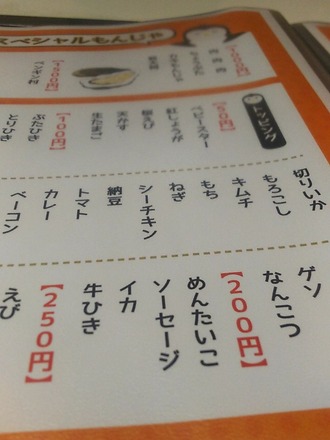 スペシャルもんじゃ
ペンギン村
トッピング
【50円】
ベビースター
紅しょうが
桜えび
天かす
生たまご
【100円】
ぶたひき
とりひき
切りいか
もろこし
キムチ
もち
ねぎ
シーチキン
納豆
トマト
カレー
ベーコン
ゲソ
なんこつ
【200円】
めんたいこ
ソーセージ
イカ
牛ひき
【250円】
えび